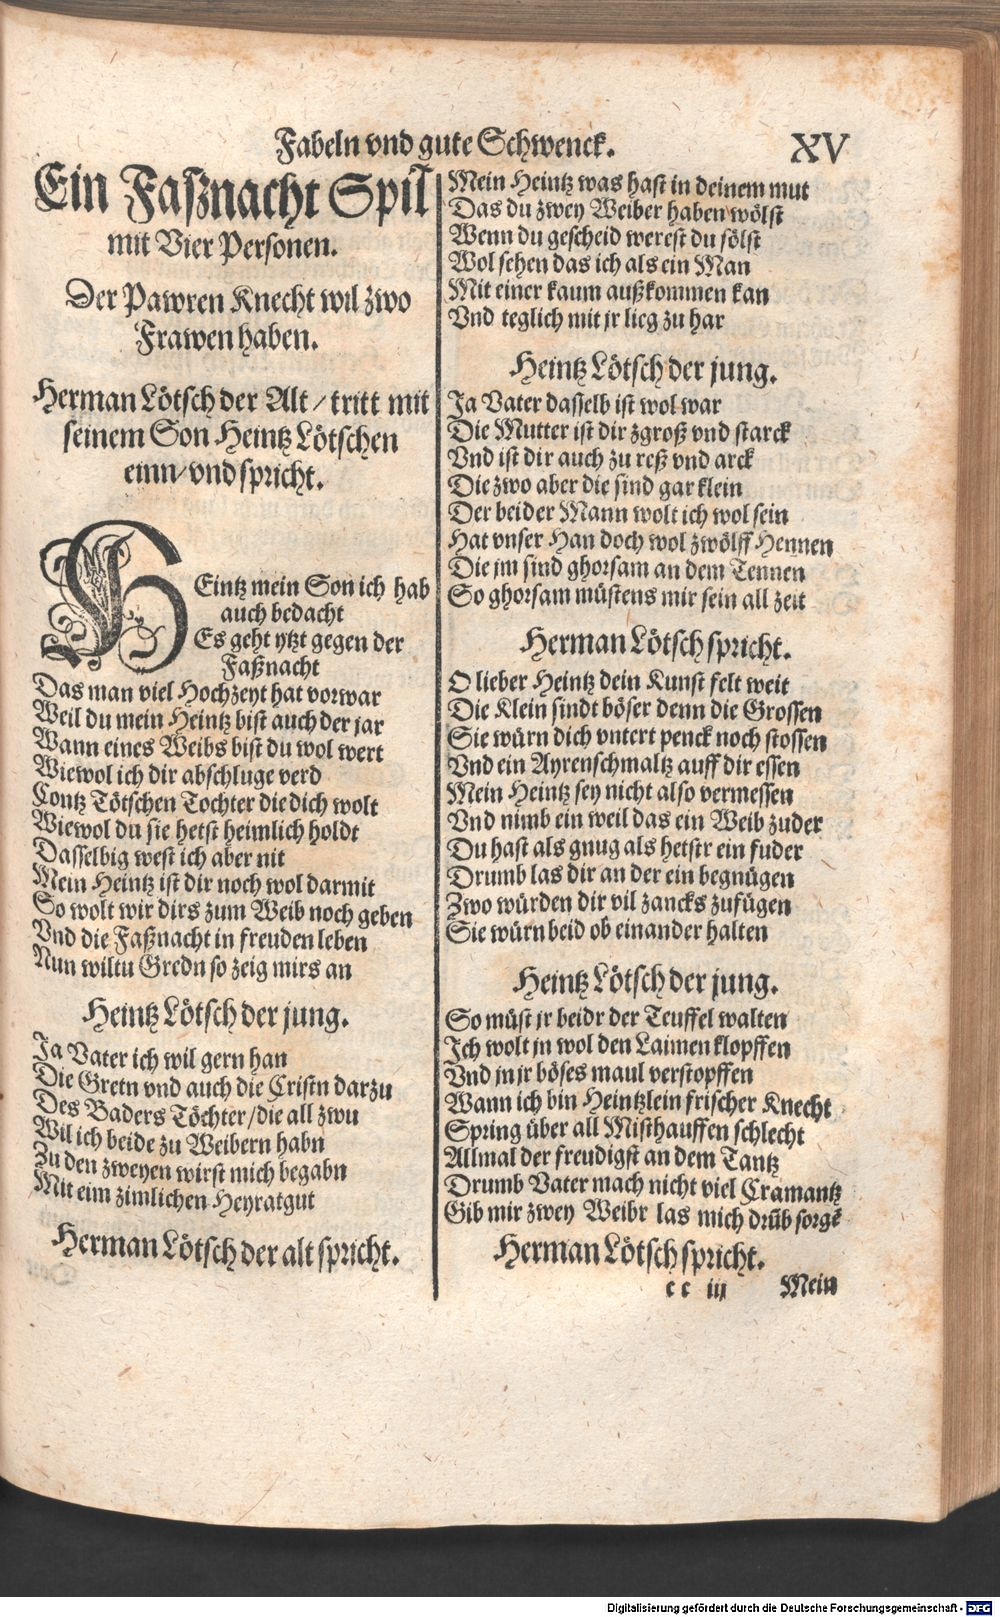 Fabeln vnd gute Schwenck. XV
Ein Faßnacht Spil
mit Vier Personen.
Der Pawren Knecht wil zwo
Frawen haben.
Herman Lötsch der Alt / tritt mit
seinem Son Heintz Lötschen
einn / vnd spricht.
HEintz mein Son ich hab
auch bedacht
Es geht ytzt gegen der
Faßnacht
Das man viel Hochzeyt hat vorwar
Weil du mein Heintz bist auch der jar
Wann eines Weibs bist du wol wert
Wiewol ich dir abschluge verd
Contz Tötschen Tochter die dich wolt
Wiewol du sie hetst heimlich holdt
Dasselbig west ich aber nit
Mein Heintz ist dir noch wol darmit
So wolt wir dirs zum Weib noch geben
Vnd die Faßnacht in freuden leben
Nun wiltu Gredn so zeig mirs an
Heintz Lötsch der jung.
Ja Vater ich wil gern han
Die Gretn vnd auch die Cristn darzu
Des Baders Töchter / die all zwu
Wil ich beide zu Weibern habn
Zu den zweyen wirst mich begabn
Mit eim zimlichen Heyratgut
Herman Lötsch der alt spricht.
Mein Heintz was hast in deinem mut
Das du zwey Weiber haben wölst
Wenn du gescheid werest du sölst
Wol sehen das ich als ein Man
Mit einer kaum außkommen kan
Vnd teglich mit jr lieg zu har
Heintz Lötsch der jung.
Ja Vater dasselb ist wol war
Die Mutter ist dir zgroß vnd starck
Vnd ist dir auch zu reß vnd arck
Die zwo aber die sind gar klein
Der beider Mann wolt ich wol sein
Hat vnser Han doch wol zwölff Hennen
Die jm sind ghorsam an dem Tennen
So ghorsam müstens mir sein all zeit
Herman Lötsch spricht.
O lieber Heintz dein Kunst felt weit
Die Klein sindt böser denn die Grossen
Sie würn dich vntert penck noch stossen
Vnd ein Ayrenschmaltz auff dir essen
Mein Heintz sey nicht also vermessen
Vnd nimb ein weil das ein Weib zuder
Du hast als gnug als hetstr ein fuder
Drumb las dir an der ein begnügen
Zwo würden dir vil zancks zufügen
Sie würn beid ob einander halten
Heintz Lötsch der jung.
So müst jr beidr der Teuffel walten
Ich wolt jn wol den Laimen klopffen
Vnd jn jr böses maul verstopffen
Wann ich bin Heintzlein frischer Knecht
Spring über all Misthauffen schlecht
Allmal der freudigst an dem Tantz
Drumb Vater mach nicht viel Cramantz
Gib mir zwey Weibr las mich drūb sorgē
Herman Lötsch spricht.
cc iij Mein
Digitalisierung gefördert durch die Deutsche Forschungsgemeinschaft - DFG